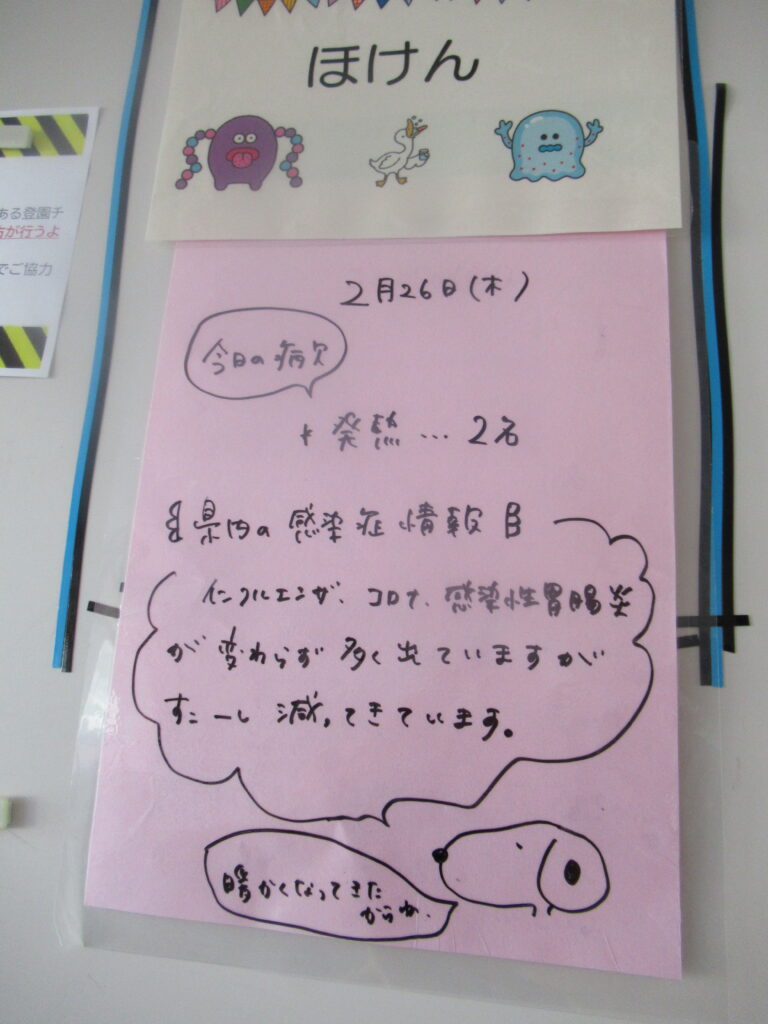 ほけん
ある登園チ
方が行うよ
でご協力
2月26日(木)
今日の病欠
発熱…2名
県内の感染症情報
インフルエンザ、コロナ、感染性胃腸炎
が変わらず多く出ていますが
すこーし減ってきています。
暖かくなってきた
からか、